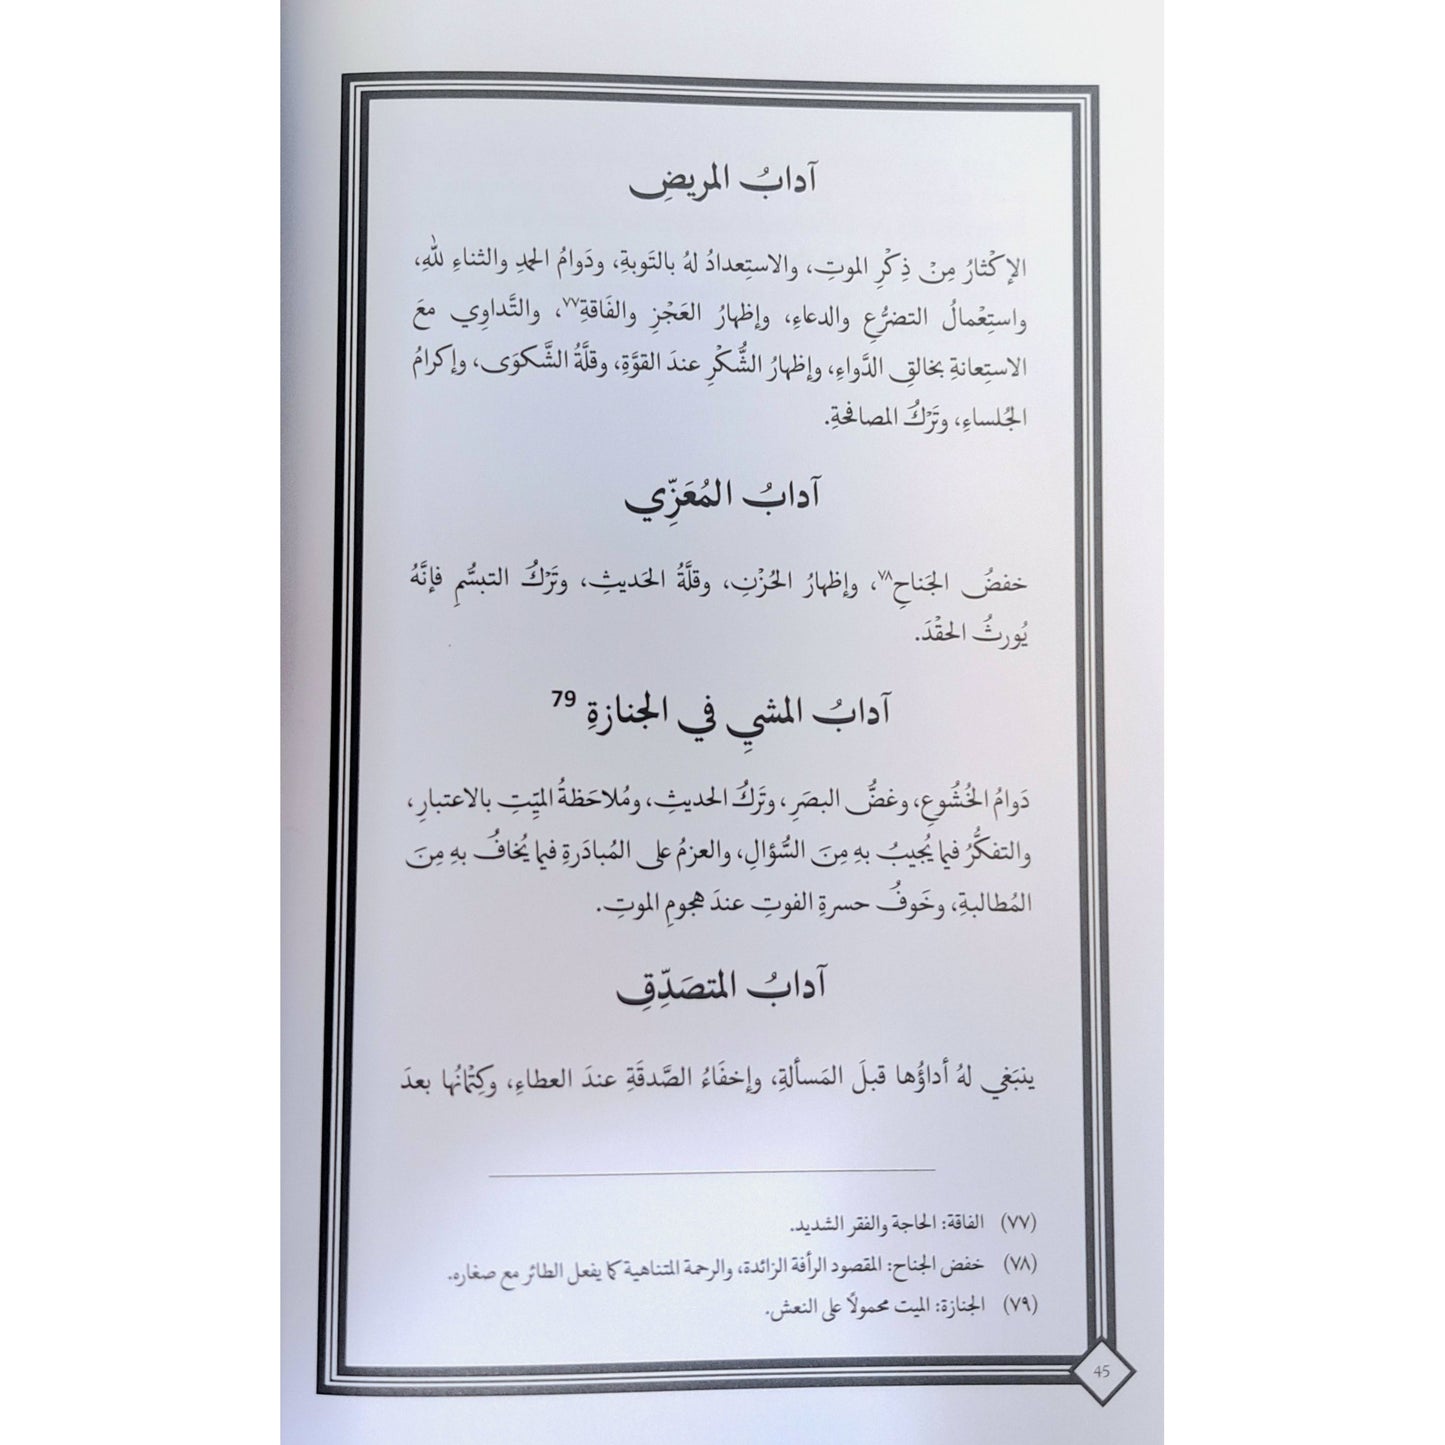 آدابُ المريضِ
الإكْثارُ مِنْ ذِكْرِ الموتِ، والاستِعدادُ لهُ بالتَوبةِ، ودَوامُ الحمدِ والثناءِ للهِ،
واستِعْمالُ التضرُّعِ والدعاءِ، وإظهارُ العَجْزِ والفَاقةِ٧٧، والتَّداوِي معَ
الاستِعانةِ بخالقِ الدَّواءِ، وإظهارُ الشُّكْرِ عندَ القوَّةِ، وقلَّةُ الشَّكوَى، وإكرامُ
الجُلساءِ، وتَرْكُ المصافحةِ.
آدابُ المُعَزِّي
خفضُ الجَناحِ٧٨، وإظهارُ الحُزْنِ، وقلَّةُ الحَديثِ، وتَرْكُ التبسُّمِ فإنَّهُ
يُورثُ الحقْدَ.
آدابُ المشيِ في الجنازةِ 79
دَوامُ الخُشُوعِ، وغضُّ البصَرِ، وتَركُ الحديثِ، ومُلاحَظةُ الميِّتِ بالاعتبارِ،
والتفكُّرُ فيما يُجيبُ بهِ مِنَ السُّؤالِ، والعزمُ على المُبادَرةِ فيما يُخافُ بهِ مِنَ
المُطالبةِ، وخَوفُ حسرةِ الفوتِ عندَ هجومِ الموتِ.
آدابُ المتصَدِّقِ
ينبَغي لهُ أداؤُها قبلَ المَسألةِ، وإخفَاءُ الصَّدقَةِ عندَ العطاءِ، وكِتْمانُها بعدَ
(٧٧) الفاقة: الحاجة والفقر الشديد.
(٧٨) خفض الجناح: المقصود الرأفة الزائدة، والرحمة المتناهية كما يفعل الطائر مع صغاره.
(٧٩) الجنازة: الميت محمولاً على النعش.
45